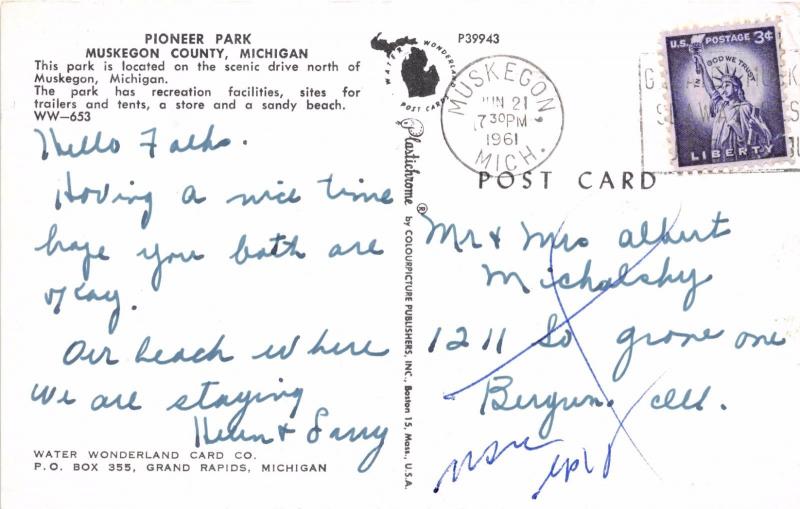 PIONEER PARK
MUSKEGON COUNTY, MICHIGAN
This park is located on the scenic drive north of
Muskegon, Michigan.
The park has recreation facilities, sites for
trailers and tents, a store and a sandy beach.
WW—653
Hello Folks.
Having a nice time
hope you both are
okay.
Our beach where
we are staying
Helen & Larry
WATER WONDERLAND CARD CO.
P.O. BOX 355, GRAND RAPIDS, MICHIGAN
WATER WONDERLAND
POST CARDS
Plastichrome ® by COLOURPICTURE PUBLISHERS, INC., Boston 15, Mass., U.S.A.
P39943
MUSKEGON,
JUN 21
7 30 PM
1961
MICH.
U.S. POSTAGE 3¢
IN GOD WE TRUST
LIBERTY
POST CARD
Mr & Mrs Albert
Michalsky
1211 So grove ave
Berwyn. Ill.